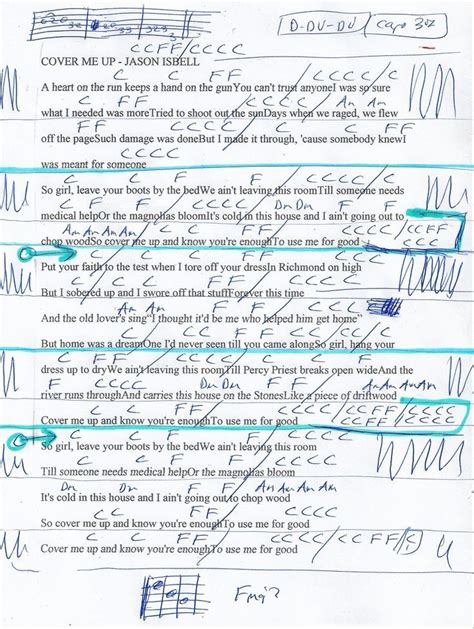 D-DU-DU
CCFF/CCCC
COVER ME UP - JASON ISBELL
C C F F CCCC / C
A heart on the run keeps a hand on the gunYou can't trust anyoneI was so sure
C F F CCCC Am Am
what I needed was moreTried to shoot out the sunDays when we raged, we flew
F F CCCC C C F F
off the pageSuch damage was doneBut I made it through, 'cause somebody knewI
CCCC
was meant for someone
C C F F CCCC
So girl, leave your boots by the bedWe ain't leaving this roomTill someone needs
C F F CCCC Dm Dm F F
medical helpOr the magnolias bloomIt's cold in this house and I ain't going out to
Am Am Am Am C C F F CCCC / CCFF
chop woodSo cover me up and know you're enoughTo use me for good
CCC
C C F F CCCC
Put your faith to the test when I tore off your dressIn Richmond on high
C C F F CCCC
But I sobered up and I swore off that stuffForever this time
Am Am F F CCC
And the old lover's sing"I thought it'd be me who helped him get home"
C C F F CC / C
But home was a dreamOne I'd never seen till you came alongSo girl, hang your
C F F CCCC C F
dress up to dryWe ain't leaving this roomTill Percy Priest breaks open wideAnd the
F CCCC Dm Dm F F Am Am Am Am
river runs throughAnd carries this house on the StonesLike a piece of driftwood
C C F F CCCC / CCFF / CCCC
Cover me up and know you're enoughTo use me for good
CCFF CCCC
C C F F CCCC
So girl, leave your boots by the bedWe ain't leaving this room
C C F F CCCC
Till someone needs medical helpOr the magnolias bloom
Dm Dm F F Am Am Am Am
It's cold in this house and I ain't going out to chop wood
C C F F CCCC
So cover me up and know you're enoughTo use me for good
C C F F CCCC / CC FF / C
Cover me up and know you're enoughTo use me for good